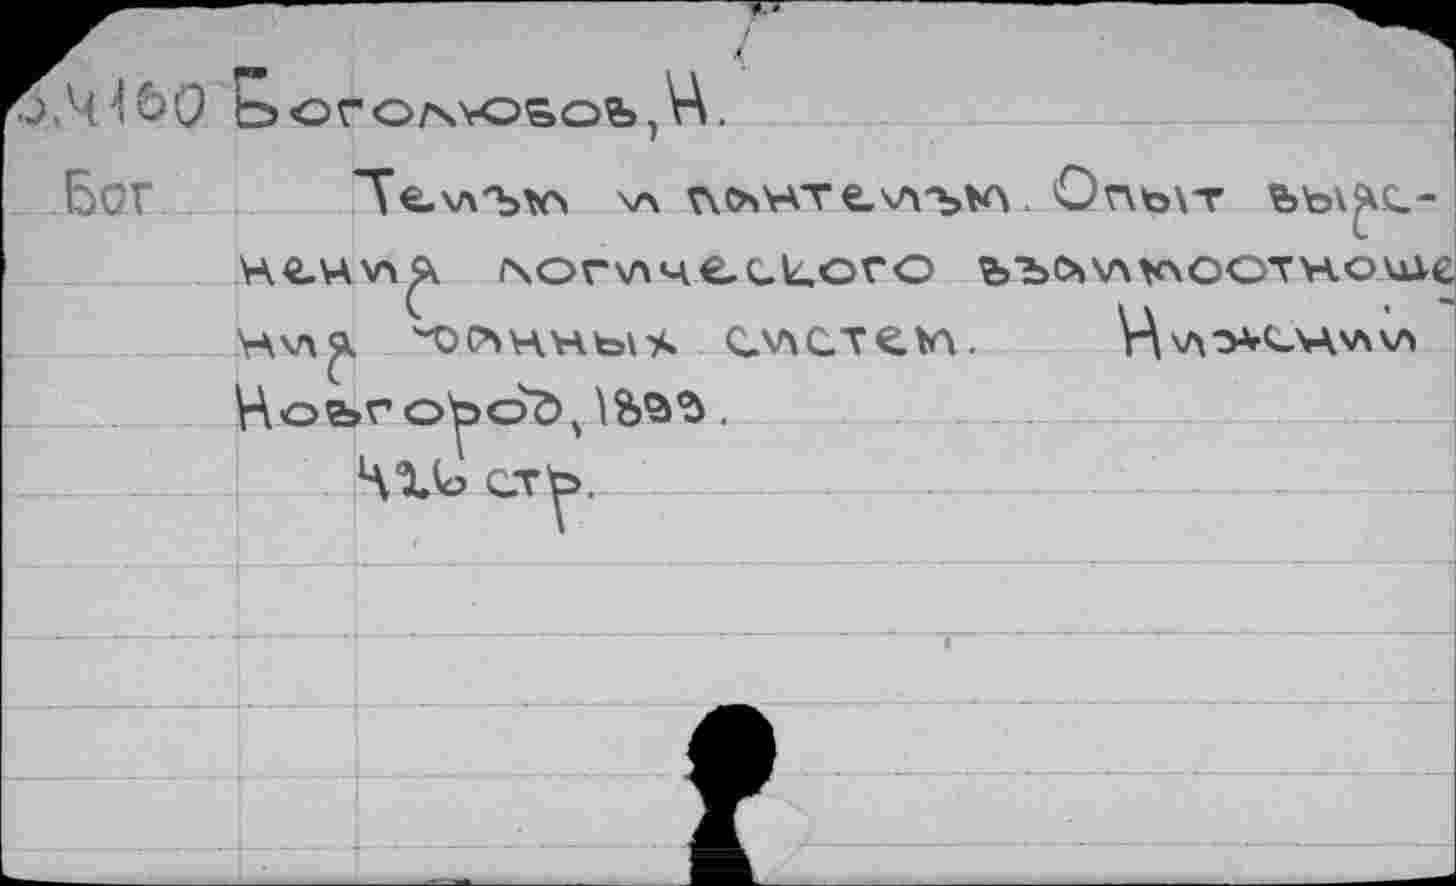 Боголюбов, Н.
Бог Теизм и пантеизм. Опыт выяс-
нения логического взаимоотноше
ния данных систем. Нижнии
Новгород, 1899.
426 стр.